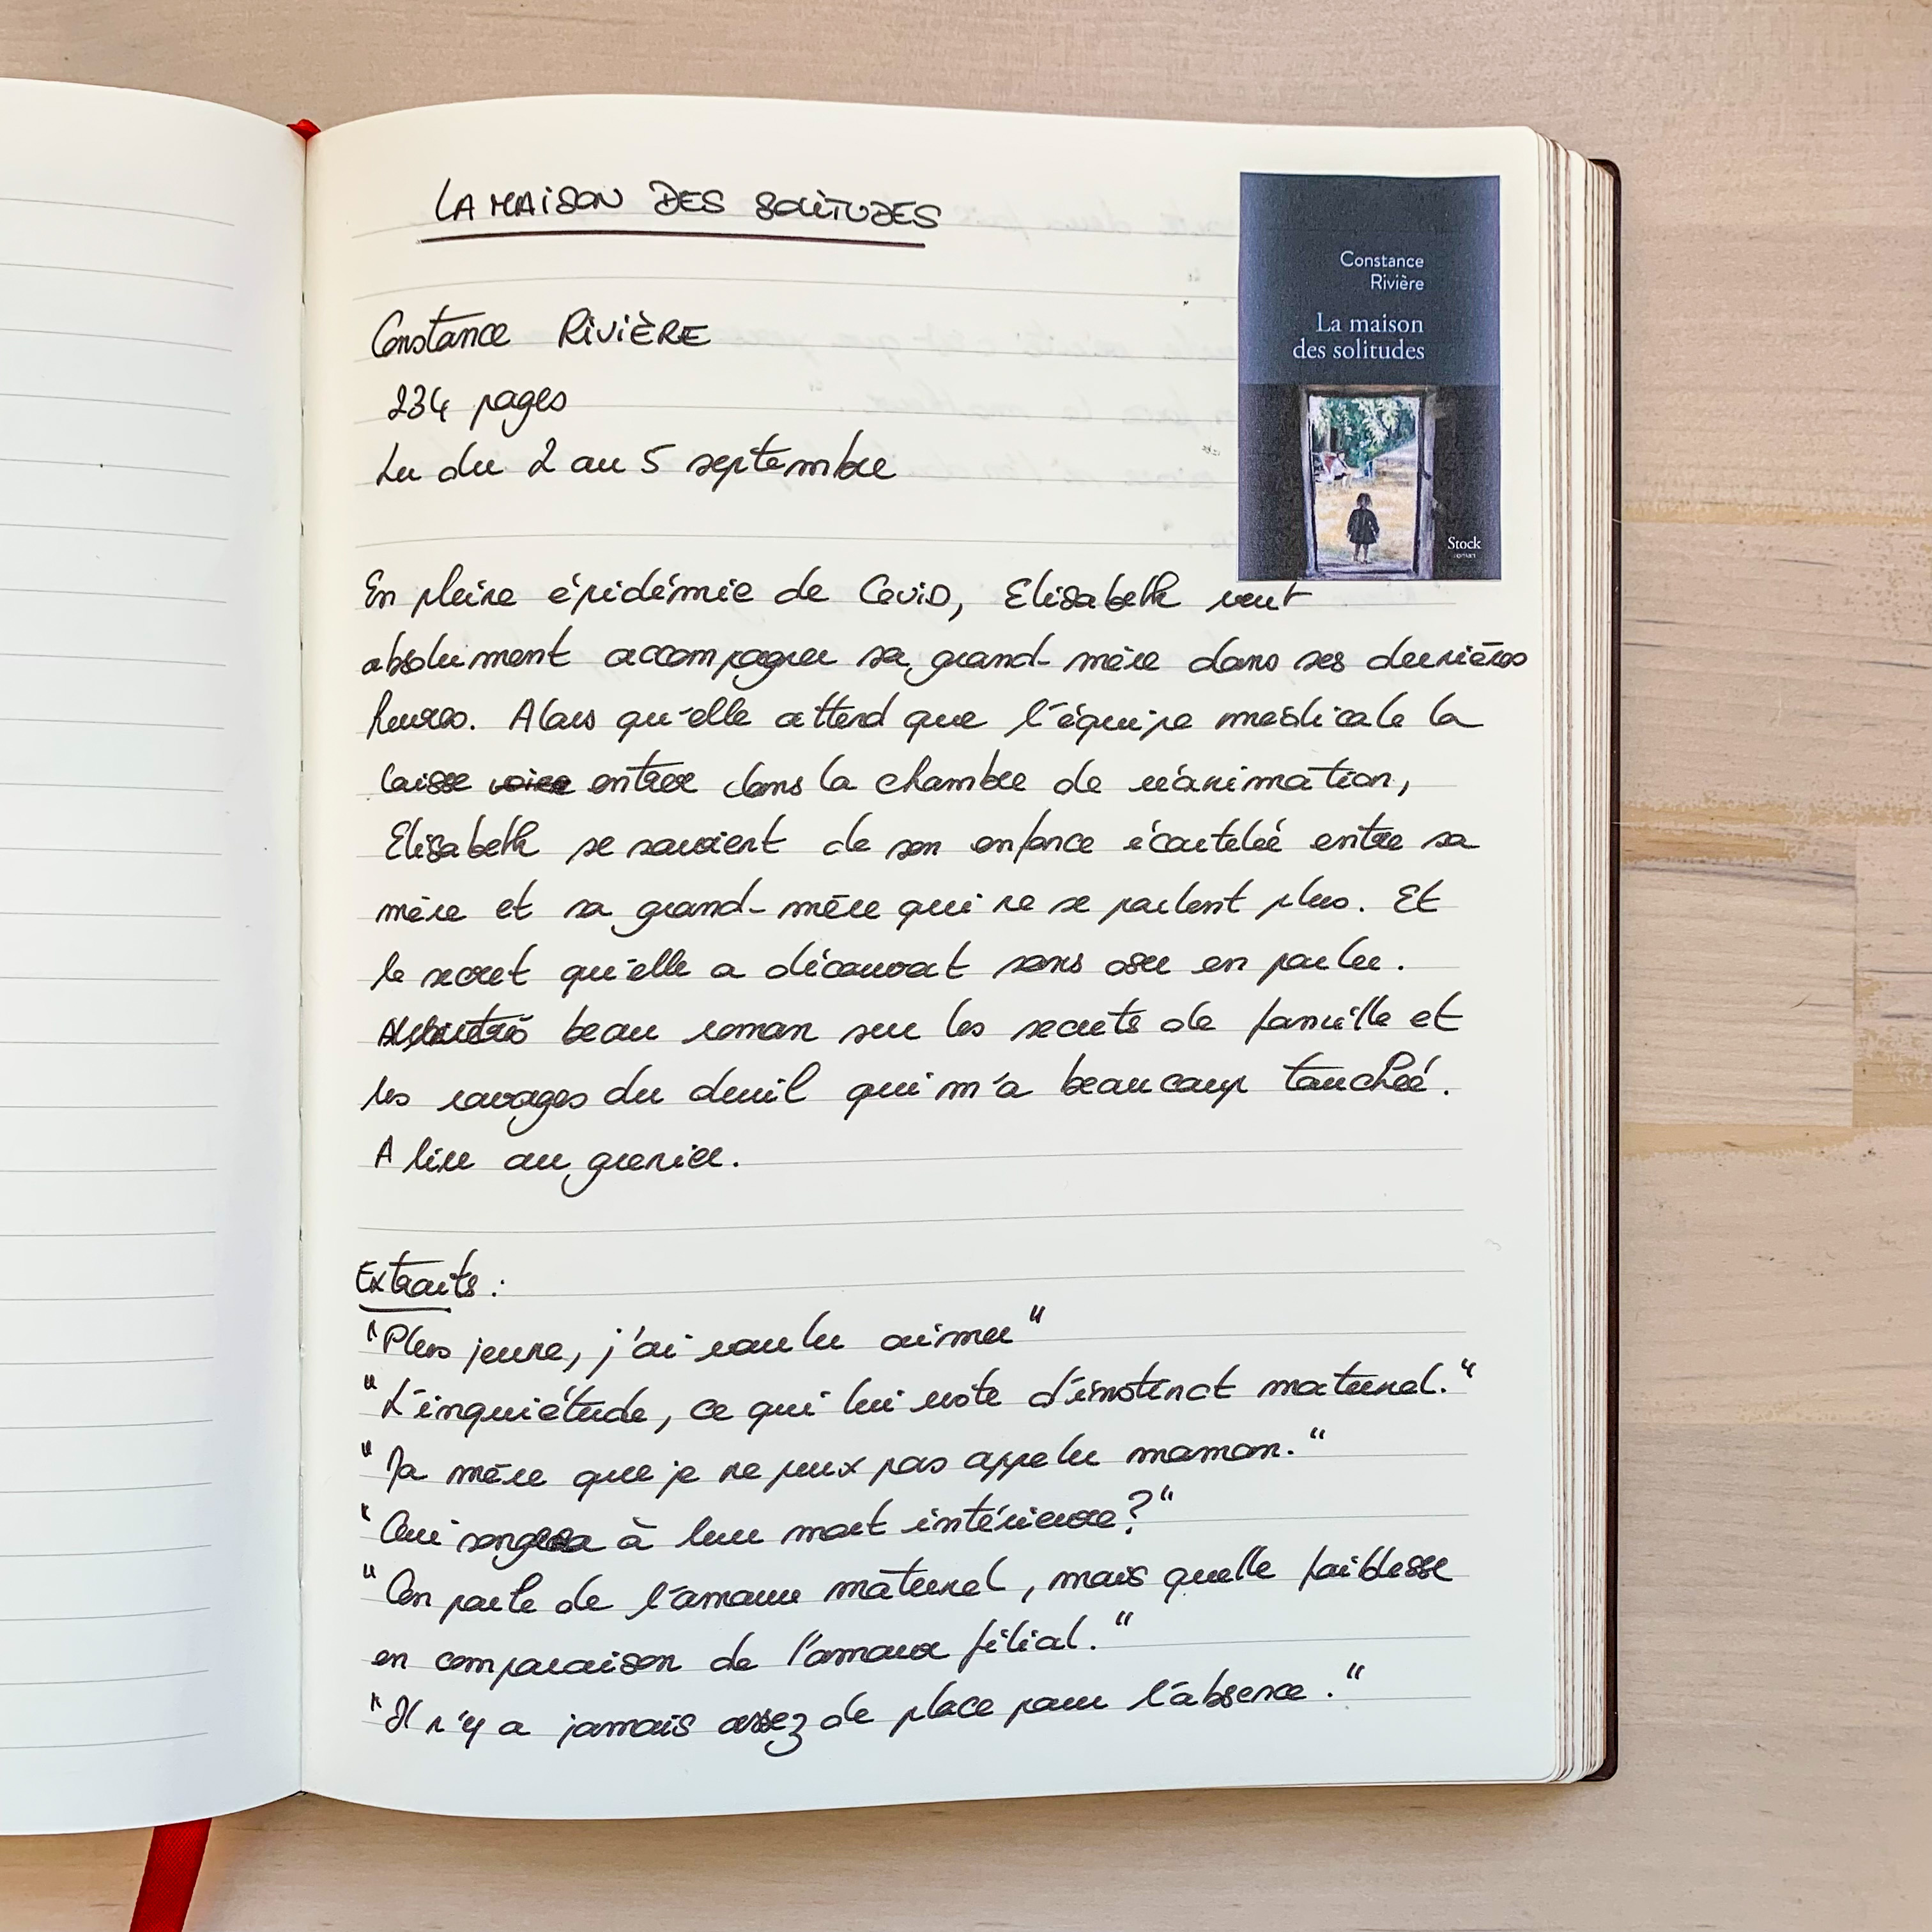 LA MAISON DES SOLITUDES
Constance RIVIÈRE
234 pages
Lu du 2 au 5 septembre
Constance
Rivière
La maison
des solitudes
Stock
roman
En pleine épidémie de Covid, Elisabeth veut
absolument accompagner sa grand-mère dans ses dernières
heures. Alors qu'elle attend que l'équipe médicale la
laisse entrer dans la chambre de réanimation,
Elisabeth se souvient de son enfance écartelée entre sa
mère et sa grand-mère qui ne se parlent plus. Et
le secret qu'elle a découvert sans oser en parler.
beau roman sur les secrets de famille et
les ravages du deuil qui m'a beaucoup touchée.
A lire au grenier.
Extraits :
"Plus jeune, j'ai voulu aimer"
"L'inquiétude, ce qui lui reste d'instinct maternel."
"Ma mère que je ne peux pas appeler maman."
"Qui songera à leur mort intérieure?"
"On parle de l'amour maternel, mais quelle faiblesse
en comparaison de l'amour filial."
"Il n'y a jamais assez de place pour l'absence."